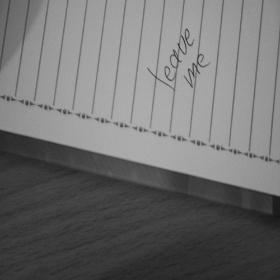 leave
me